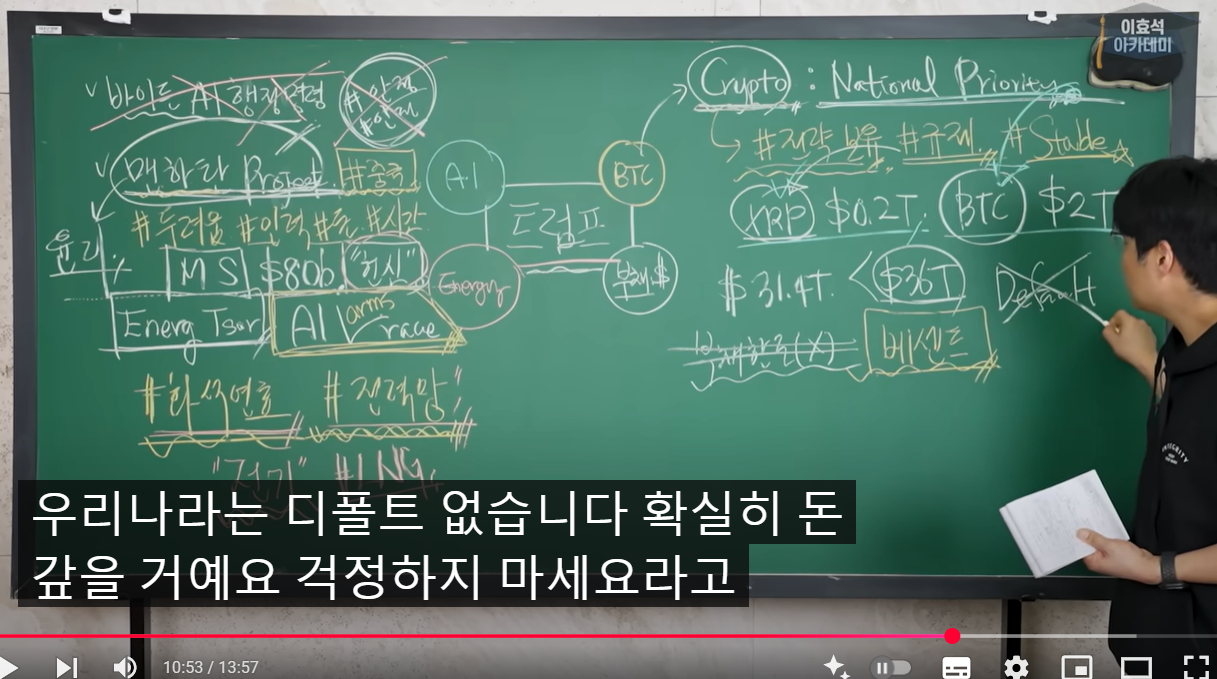 이효석
아카데미
바이든 AI 행정명령
#안전
Crypto : National Priority
#전략 보유 #규제 #Stable
맨하탄 Project #중국
AI
BTC
트럼프
#두려움 #인력 #돈 #시간
XRP $0.2T
BTC $2T
윤리
MS $80b. "혁신"
Energy
부채.$
$31.4T. < $36T
Default
Energ Tsar
AI arms race
부채한도(X)
베센트
#화석연료 #전력망
"전기" #LNG.
우리나라는 디폴트 없습니다 확실히 돈
갚을 거예요 걱정하지 마세요라고
10:53 / 13:57